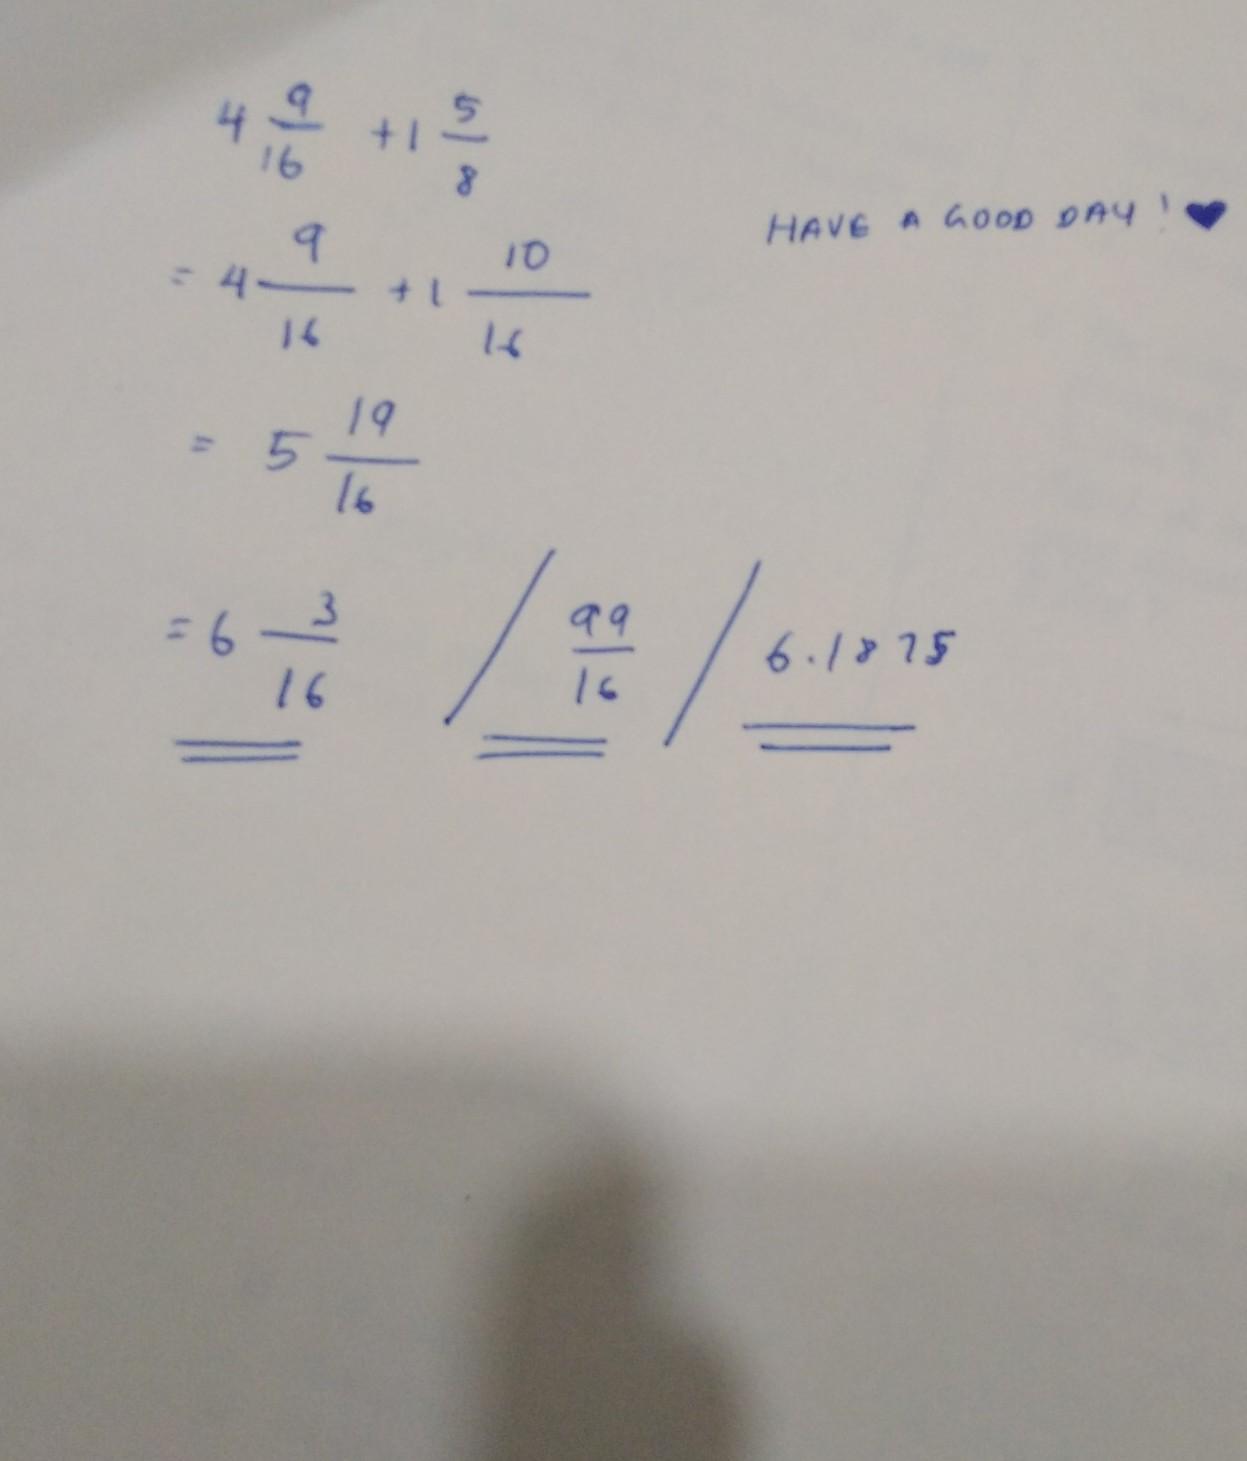 4 9/16 + 1 5/8
= 4 9/16 + 1 10/16
HAVE A GOOD DAY ! ♥
= 5 19/16
= 6 3/16 / 99/16 / 6.1875